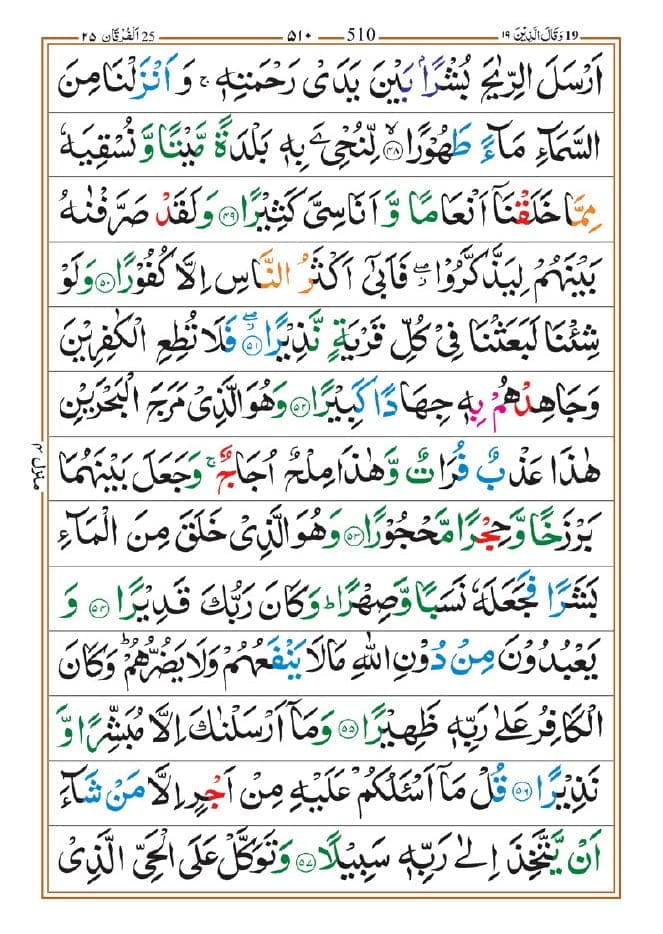 19 وَقَالَ الَّذِيْنَ ١٩ 510 ٥١٠ 25 اَلْفُرْقَان ٢٥
اَرْسَلَ الرِّيٰحَ بُشْرًۢا بَيْنَ يَدَىْ رَحْمَتِهٖ ۚ وَ اَنْزَلْنَا مِنَ
السَّمَآءِ مَآءً طَهُوْرًا ۙ﴿۴۸﴾ لِّنُحْیِۦَ بِهٖ بَلْدَةً مَّيْتًا وَّ نُسْقِيَهٗ
مِمَّا خَلَقْنَاۤ اَنْعَامًا وَّ اَنَاسِىَّ كَثِيْرًا ﴿۴۹﴾ وَلَقَدْ صَرَّفْنٰهُ
بَيْنَهُمْ لِيَذَّكَّرُوْا ۖ فَاَبٰٓى اَكْثَرُ النَّاسِ اِلَّا كُفُوْرًا ﴿۵۰﴾ وَلَوْ
شِئْنَا لَبَعَثْنَا فِىْ كُلِّ قَرْيَةٍ نَّذِيْرًا ۖ﴿۵۱﴾ فَلَا تُطِعِ الْكٰفِرِيْنَ
وَجَاهِدْهُمْ بِهٖ جِهَادًا كَبِيْرًا ﴿۵۲﴾ وَهُوَ الَّذِىْ مَرَجَ الْبَحْرَيْنِ
هٰذَا عَذْبٌ فُرَاتٌ وَّهٰذَا مِلْحٌ اُجَاجٌ ۚ وَجَعَلَ بَيْنَهُمَا
بَرْزَخًا وَّحِجْرًا مَّحْجُوْرًا ﴿۵۳﴾ وَهُوَ الَّذِىْ خَلَقَ مِنَ الْمَآءِ
بَشَرًا فَجَعَلَهٗ نَسَبًا وَّصِهْرًا ؕ وَكَانَ رَبُّكَ قَدِيْرًا ﴿۵۴﴾ وَ
يَعْبُدُوْنَ مِنْ دُوْنِ اللّٰهِ مَا لَا يَنْفَعُهُمْ وَلَا يَضُرُّهُمْ ؕ وَكَانَ
الْكَافِرُ عَلٰى رَبِّهٖ ظَهِيْرًا ﴿۵۵﴾ وَمَاۤ اَرْسَلْنٰكَ اِلَّا مُبَشِّرًا وَّ
نَذِيْرًا ﴿۵۶﴾ قُلْ مَاۤ اَسْئَلُكُمْ عَلَيْهِ مِنْ اَجْرٍ اِلَّا مَنْ شَآءَ
اَنْ يَّتَّخِذَ اِلٰى رَبِّهٖ سَبِيْلًا ﴿۵۷﴾ وَتَوَكَّلْ عَلَى الْحَىِّ الَّذِىْ
منزل ۴